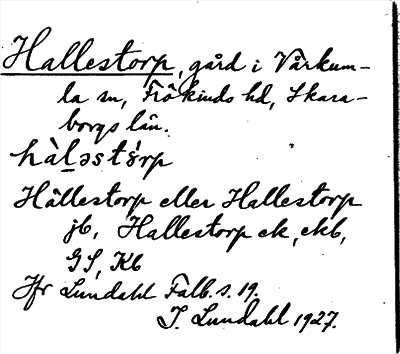 Hallestorp, gård i Vårkum-
la sn, Frökinds hd, Skara-
borgs län.
hàləstòrp
Hällestorp eller Hallestorp
jb, Hallestorp ek, ekb,
GS, Kb
Jfr Lundahl Falb. s. 19.
I. Lundahl 1927.